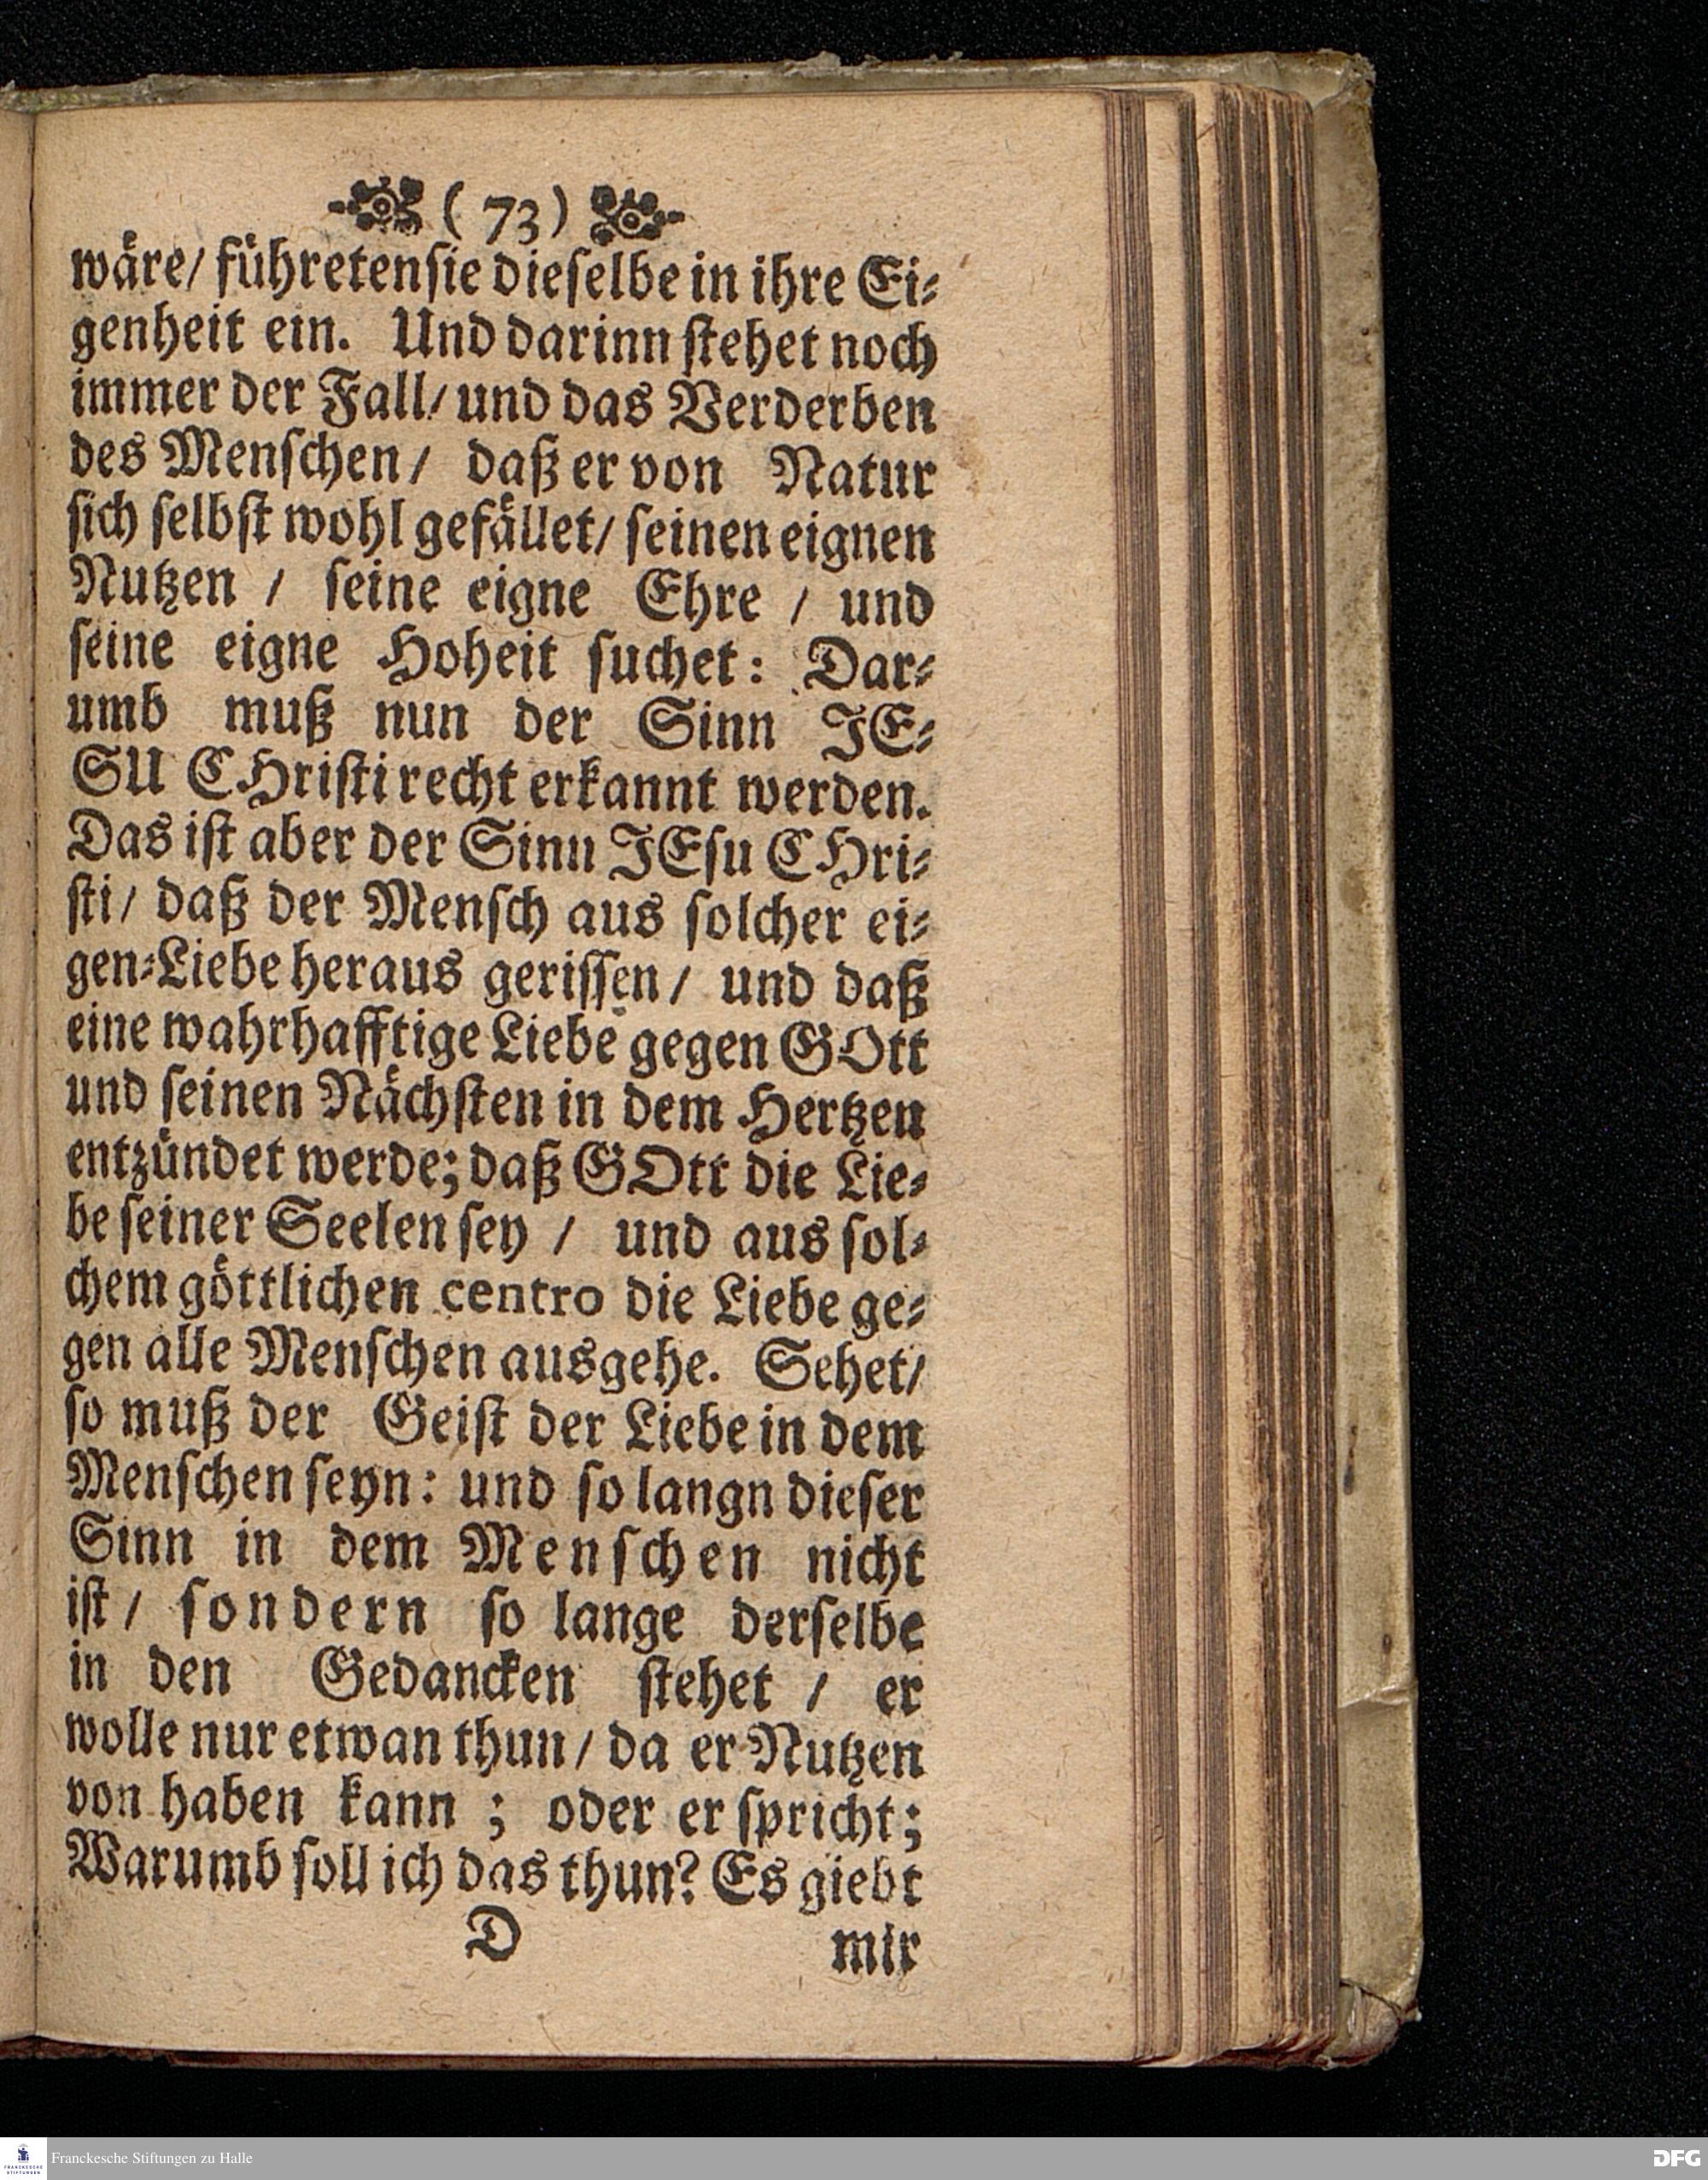 ( 73 )
wäre/ führeten sie dieselbe in ihre Ei-
genheit ein. Und darinn stehet noch
immer der Fall/ und das Verderben
des Menschen/ daß er von Natur
sich selbst wohl gefället/ seinen eignen
Nutzen / seine eigne Ehre / und
seine eigne Hoheit suchet: Dar-
umb muß nun der Sinn JE-
SU CHristi recht erkannt werden.
Das ist aber der Sinn JEsu CHri-
sti/ daß der Mensch aus solcher ei-
gen-Liebe heraus gerissen/ und daß
eine wahrhafftige Liebe gegen GOtt
und seinen Nächsten in dem Hertzen
entzündet werde; daß GOtt die Lie-
be seiner Seelen sey / und aus sol-
chem göttlichen centro die Liebe ge-
gen alle Menschen ausgehe. Sehet/
so muß der Geist der Liebe in dem
Menschen seyn: und so langn dieser
Sinn in dem Menschen nicht
ist/ sondern so lange derselbe
in den Gedancken stehet / er
wolle nur etwan thun/ da er Nutzen
von haben kann ; oder er spricht;
Warumb soll ich das thun? Es giebt
D mir
Franckesche Stiftungen zu Halle
DFG